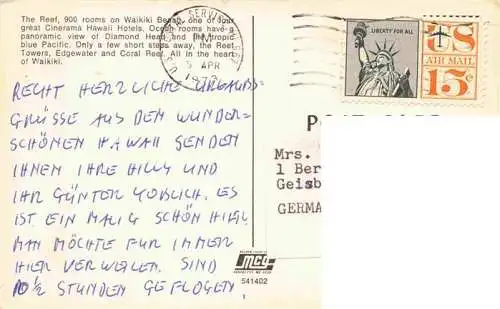 The Reef, 900 rooms on Waikiki Beach, one of four
great Cinerama Hawaii Hotels. Ocean rooms have a
panoramic view of Diamond Head and the tropic
blue Pacific. Only a few short steps away, the Reef
Towers, Edgewater and Coral Reef. All in the heart
of Waikiki.
U.S. SERVICE
PM
5 APR
LIBERTY FOR ALL
US
AIR MAIL
15¢
RECHT HERZLICHE URLAUBS-
GRÜSSE AUS DEM WUNDER-
SCHÖNEN HAWAII SENDEN
IHNEN IHRE HILLY UND
IHR GÜNTER. ES
IST EINMALIG SCHÖN HIER.
MAN MÖCHTE FÜR IMMER
HIER VERWEILEN. SIND
10 1/2 STUNDEN GEFLOGEN
POST CARD
Mrs.
1 Ber
Geisb
GERMA
MCG
541402
1